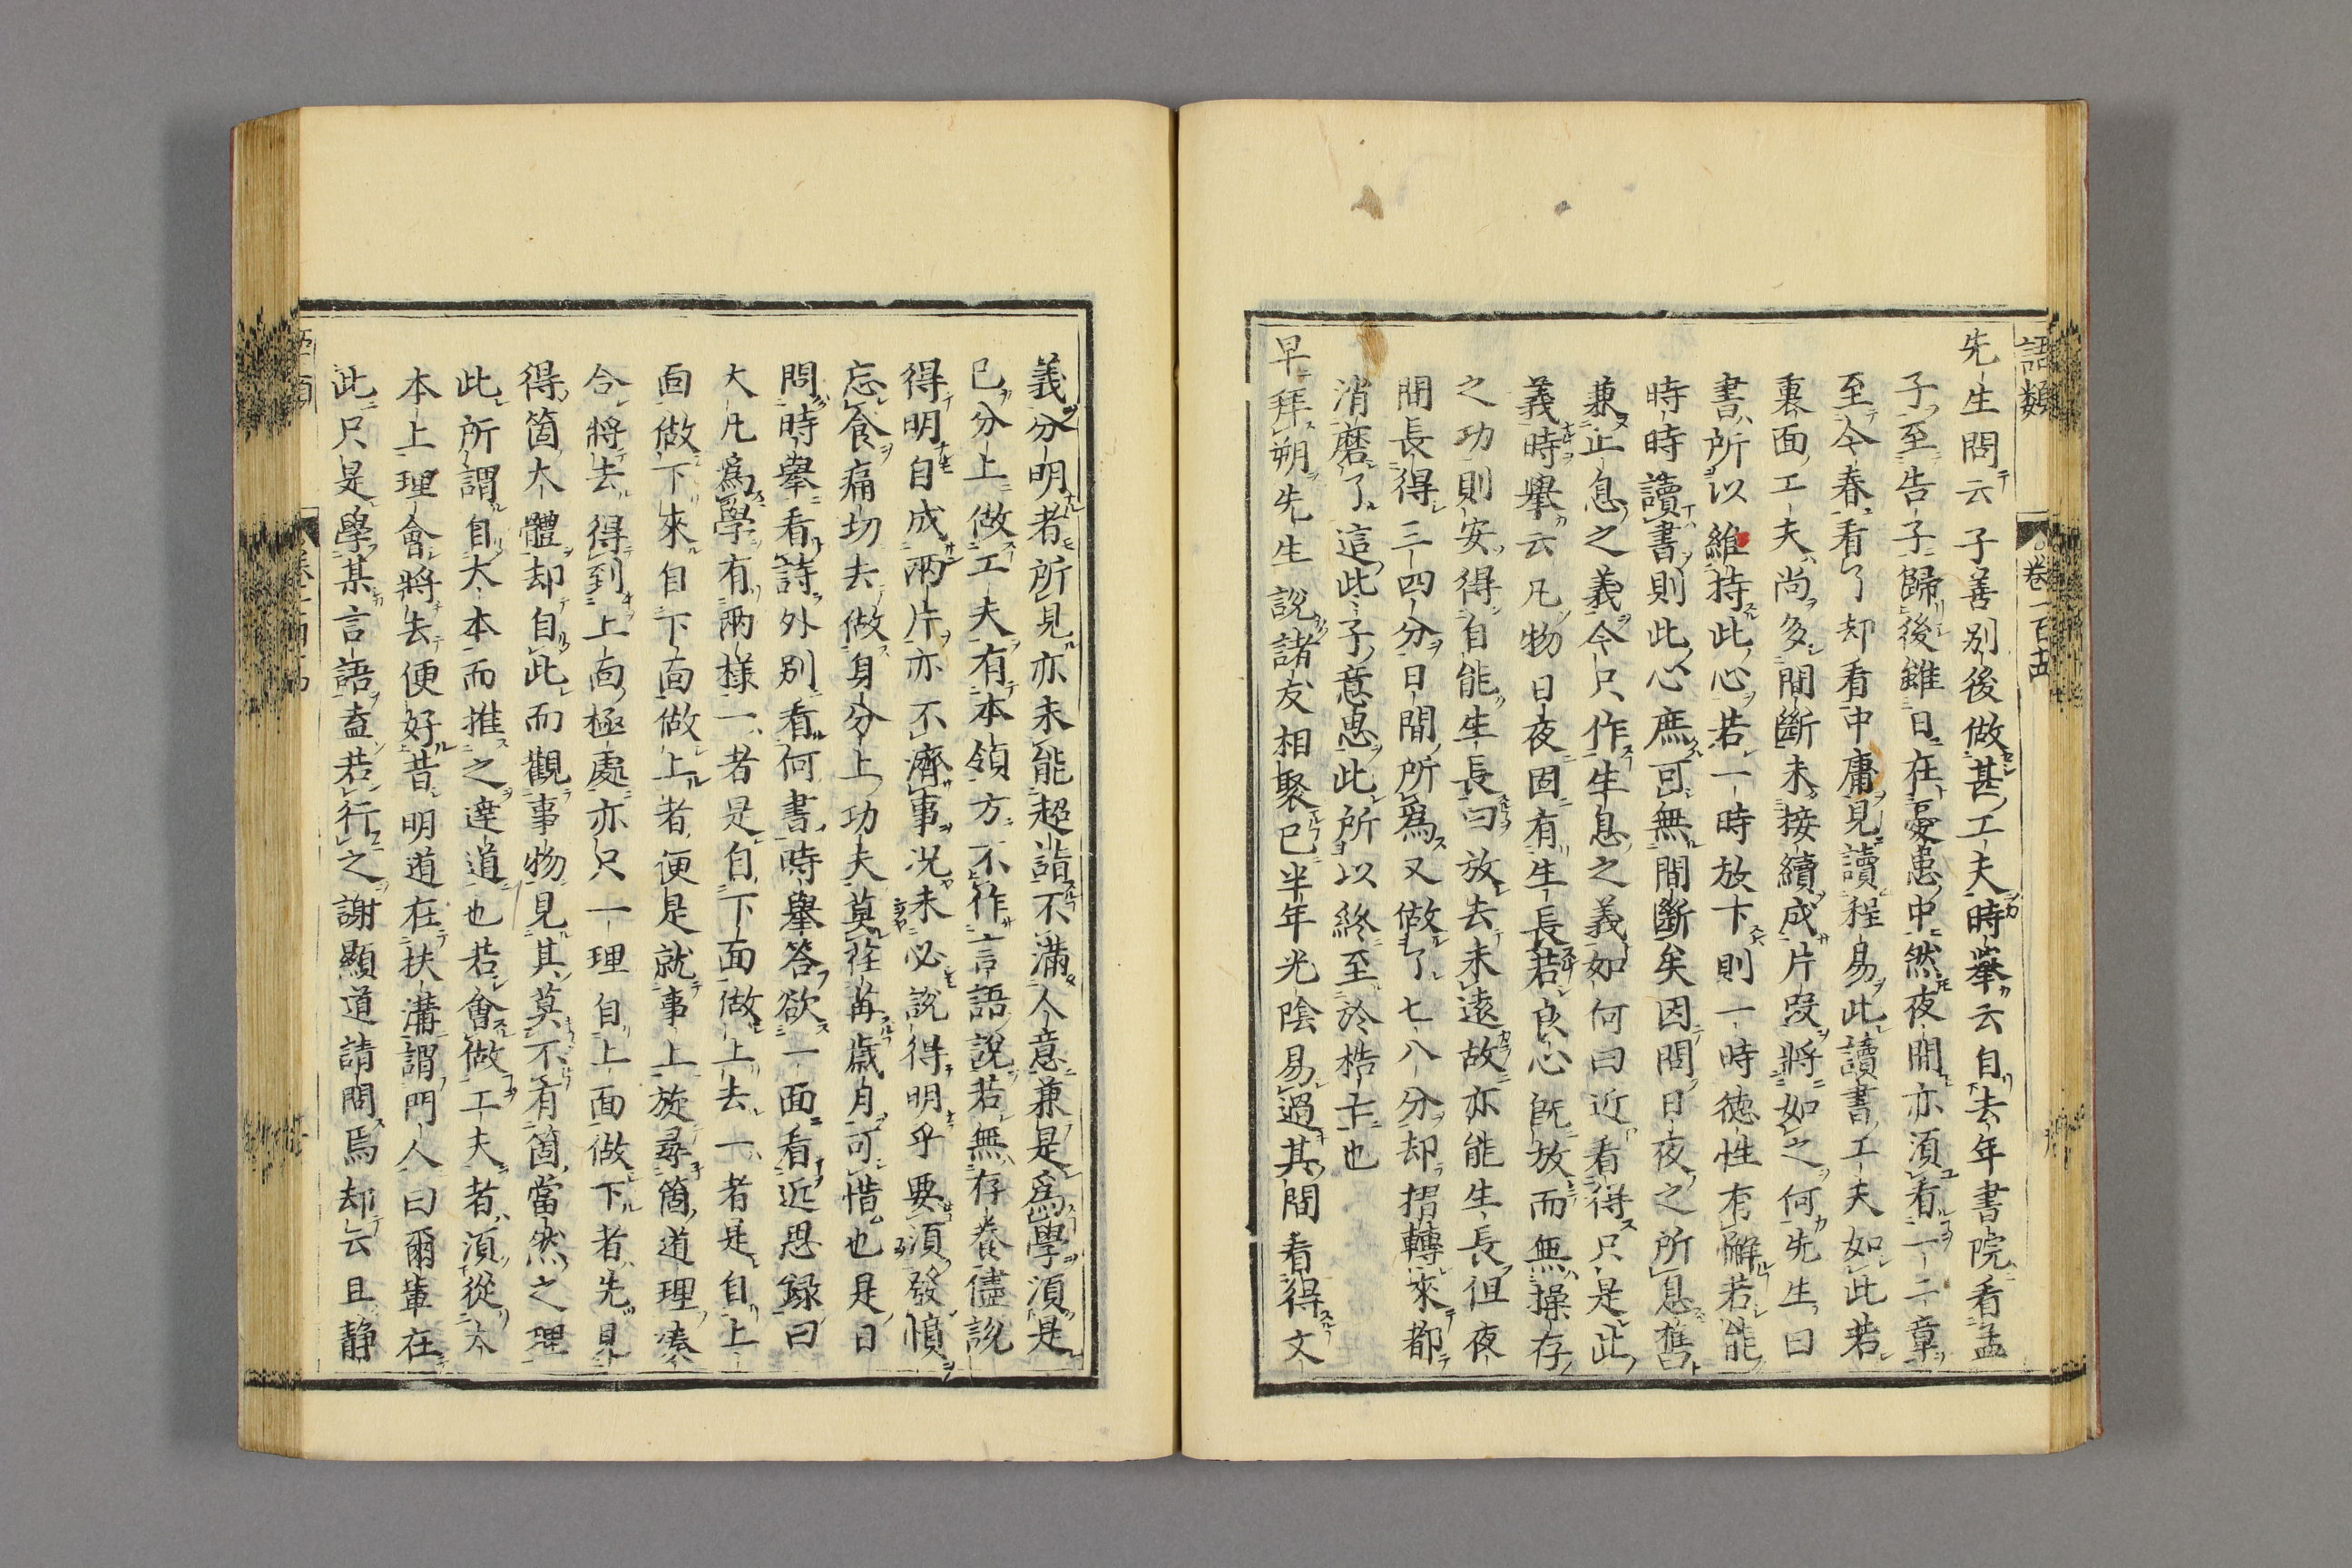 語類
卷一百十四
先生問云子善別後做甚工夫時舉云自去年書院看孟
子至告子歸後雖日在憂患中然夜間亦湏看一二章
至今春看了却看中庸見讀程易此讀書工夫如此若
裏面工夫尚多間斷未接續成片段將如之何先生曰
書所以維持此心若一時放下則一時德性有懈若能
時時讀書則此心庶可無間斷矣因問日夜之所息舊
兼止息之義今只作生息之義如何曰近看得只是此
義時舉云凡物日夜固有生長若良心既放而無操存
之功則安得自能生長曰放去未遠故亦能生長但夜
間長得三四分日間所爲又做了七八分却摺轉來都
消磨了這此子意思此所以終至於梏亡也
早拜朔先生說諸友相聚已半年光陰易過其間看得文
義分明者所見亦未能超詣不滿人意兼是爲學湏是
己分上做工夫有本領方不作言語說若無存養儘說
得明自成兩片亦不濟事况未必說得明乎要湏發憤
忘食痛切去做身分上功夫莫荏苒歲月可惜也是日
問時舉看詩外別看何書時舉答欲一面看近思録曰
大凡爲學有兩樣一者是自下面做上去一者是自上
面做下來自下面做上者便是就事上旋尋箇道理湊
合將去得到上面極處亦只一理自上面做下者先見
得箇大體却自此而觀事物見其莫不有箇當然之理
此所謂自大本而推之達道也若會做工夫者湏從大
本上理會將去便好昔明道在扶溝謂門人曰爾軰在
此只是學某言語盍若行之謝顯道請問焉却云且静